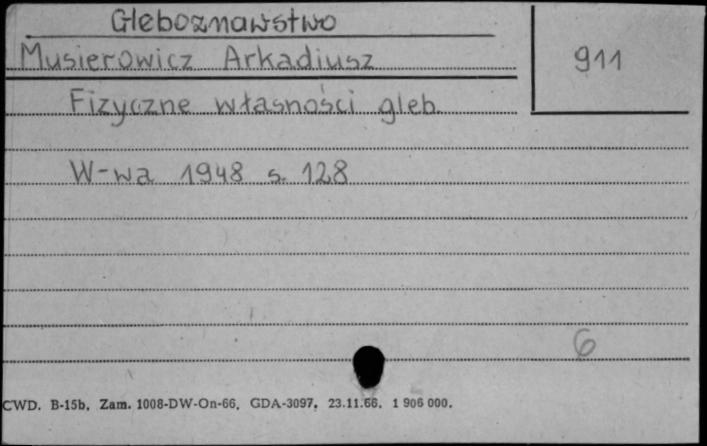 Gleboznawstwo
Musierowicz Arkadiusz
911
Fizyczne własności gleb.
W-wa 1948 s. 128
6
CWD. B-15b. Zam. 1008-DW-On-66. GDA-3097. 23.11.66. 1 906 000.